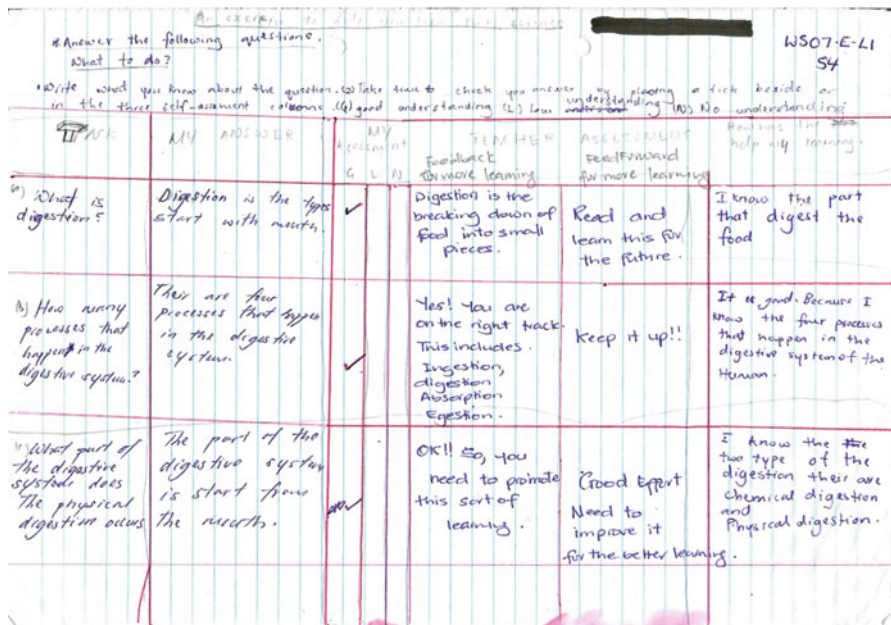 An exercise to help you learn this science
* Answer the following questions.
What to do?
WS07-E-L1
S4
• Write what you know about the question. (2) Take time to check you answer by placing a tick beside or
in the three self-assessment columns. (G) good understanding (L) Low understanding (N) No understanding
TASK
MY ANSWER
MY
Assessment
G L N
TEACHER ASSESSMENT
Feedback
for more learning
Feedforward
for more learning
How was the
help my learning.
(a) What is
digestion?
Digestion is the types
start with mouth.
Digestion is the
breaking down of
food into small
pieces.
Read and
learn this for
the future.
I know the part
that digest the
food
(b) How many
processes that
happen in the
digestive system?
Their are four
processes that happen
in the digestive
system.
Yes! You are
on the right track.
This includes.
Ingestion,
digestion
Absorption
Egestion.
Keep it up!!
It is good. Because I
know the four processes
that happen in the
digestive system of the
Human.
(c) What part of
the digestive
system does
The physical
digestion occurs
The part of the
digestive system
is start from
the mouth.
OK!! So, you
need to promote
this sort of
learning.
Good Effort
Need to
improve it
for the better learning.
I know the
two type of the
digestion their are
Chemical digestion
and
Physical digestion.